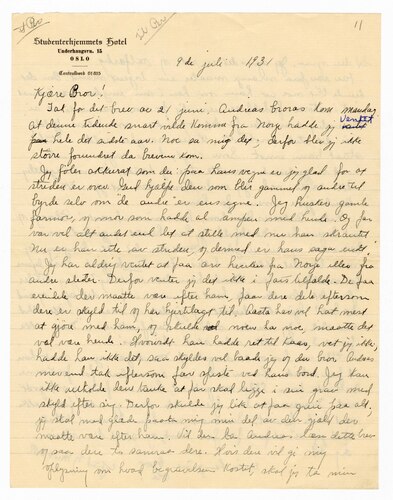 Til Per
Til Per
11
Studenterhjemmets Hotel
Underhaugsvn. 15
OSLO
Centralbord 61835
9 de juli 1931
Kjære Bror!
Tak for det brev av 21 juni, Andreas brors kom mandag
At denne tidende snart vilde komme fra Norge hadde jeg ventet
paa hele det sidste aar. Noe sa mig det; derfor blev jeg ikke
større forundret da brevene kom.
Jeg føler akkurat som du paa hans vegne er jeg glad for at
striden er over. Gud hjelpe den som blir gammel og andre til
byrde selv om de andre er ens egne. Jeg husker gamle
farmor, og mor som hadde al ansvar med hende. Og far
var vel alt andet end let at stelle med naar han skrantet
Nu er han ute av striden, og dermed er hans saga endt
Jeg har aldrig ventet at faa arv hverken fra Norge eller fra
andre steder. Derfor venter jeg det ikke i fars tilfælde. De faa
ørene der maatte være efter ham, faar dere dele eftersom
dere er skyld til og har hjertelag til. Aasta har vel hat mest
at gjøre med ham, og skulde noen ha noe, maatte det
vel være hende. Hvorvidt han hadde ret til kaas, vet jeg ikke
hadde han ikke det, saa skyldes vel baade jeg og du bror Andreas
mer end tak eftersom far spiste ved hans bord. Jeg kan
ikke utholde den tanke at far skal ligge i sin grav med
skyld efter sig. Derfor skulde jeg like at faa greie paa alt,
jeg skal med glæde paata mig min del av den gjæld der
maatte være efter ham. Vil du la Andreas læse dette brev
og saa dere to samraa dere. Hvis dere vil gi mig
oplysning om hvad begravelsen kostet, skal jeg ta min